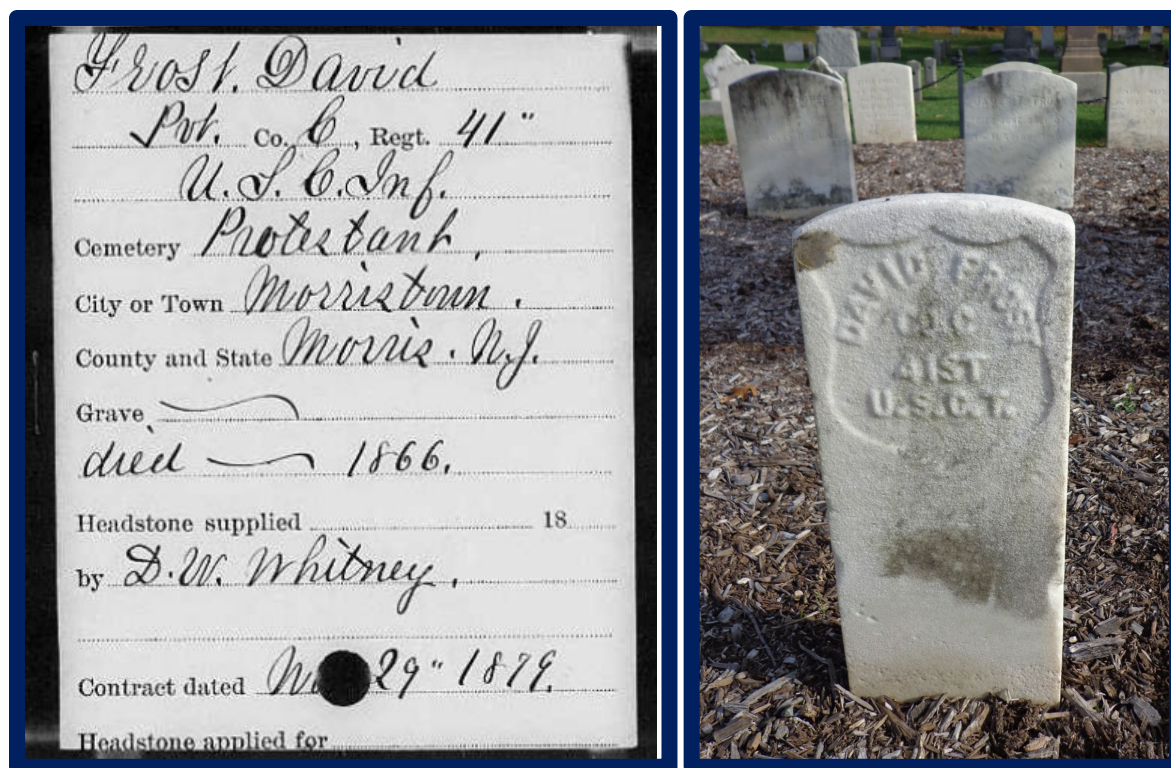 Frost, David
Pvt. Co. C, Regt. 41"
U. S. C. Inf.
Cemetery Protestant,
City or Town Morristown.
County and State Morris. N.J.
Grave
died — 1866.
Headstone supplied 18
by D. W. Whitney.
Contract dated 29" 1879.
Headstone applied for
DAVID FROST
CO. C
41ST
U.S.C.T.